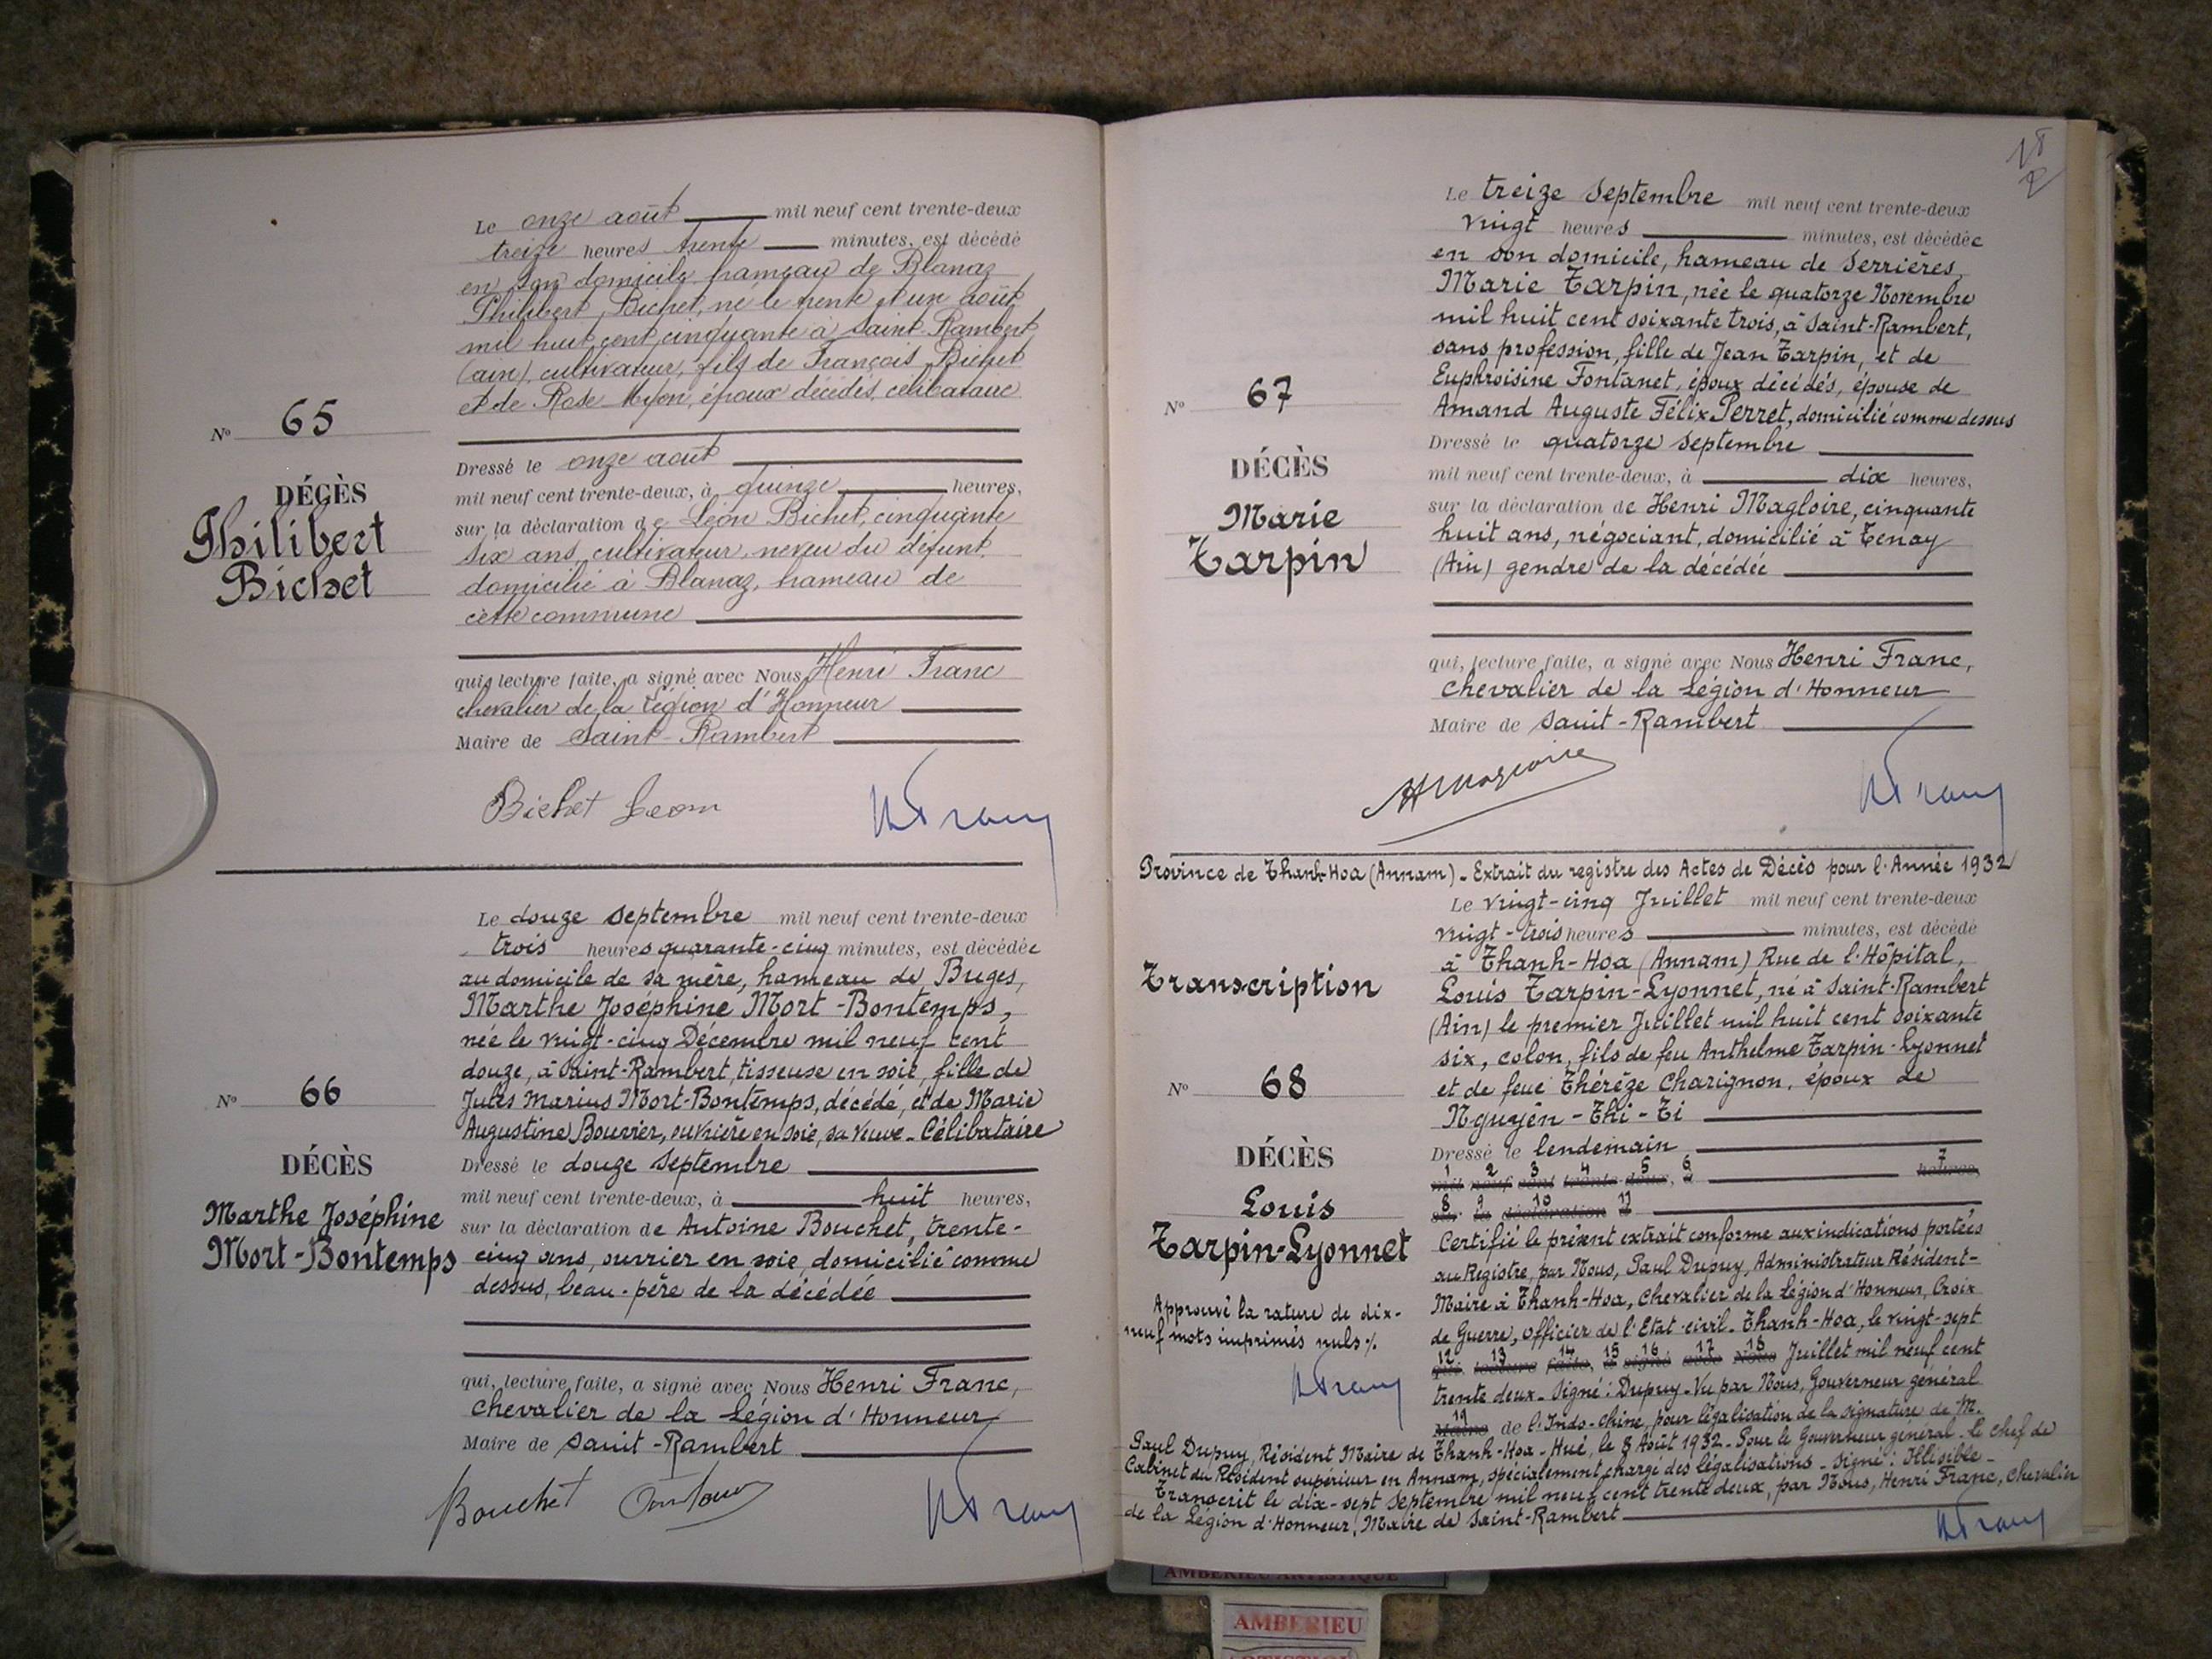 Le onze août mil neuf cent trente-deux
treize heures trente minutes, est décédé
en son domicile hameau de Blanaz
Philibert Bichet, né le trente et un août
mil huit cent cinquante à Saint-Rambert
(ain), cultivateur, fils de François Bichet
et de Rose Myon, époux décédés, célibataire
Nº 65
DÉCÈS
Philibert
Bichet
Dressé le onze août
mil neuf cent trente-deux, à quinze heures,
sur la déclaration de Léon Bichet, cinquante
six ans, cultivateur, neveu du défunt
domicilié à Blanaz, hameau de
cette commune
qui, lecture faite, a signé avec Nous Henri Franc
chevalier de la Légion d'Honneur
Maire de Saint-Rambert
Bichet Leon
HFranc
Le douze Septembre mil neuf cent trente-deux
trois heures quarante-cinq minutes, est décédée
au domicile de sa mère, hameau de Buges,
Marthe Joséphine Mort-Bontemps,
née le vingt-cinq Décembre mil neuf cent
douze, à Saint-Rambert, tisseuse en soie, fille de
Jules Marius Mort-Bontemps, décédé, et de Marie
Augustine Bouvier, ouvrière en soie, sa veuve - Célibataire
Nº 66
DÉCÈS
Marthe Joséphine
Mort-Bontemps
Dressé le douze Septembre
mil neuf cent trente-deux, à huit heures,
sur la déclaration de Antoine Bouchet, trente-
cinq ans, ouvrier en soie, domicilié comme
dessus, beau-père de la décédée
qui, lecture faite, a signé avec Nous Henri Franc,
Chevalier de la Légion d'Honneur
Maire de Saint-Rambert
Bouchet Antoine
HFranc
18
Le treize Septembre mil neuf cent trente-deux
vingt heures minutes, est décédée
en son domicile, hameau de Serrières,
Marie Tarpin, née le quatorze Novembre
mil huit cent soixante trois, à Saint-Rambert,
sans profession, fille de Jean Tarpin, et de
Euphroisine Fontanet, époux décédés, épouse de
Amand Auguste Félix Perret, domicilié comme dessus
Nº 67
DÉCÈS
Marie
Tarpin
Dressé le quatorze Septembre
mil neuf cent trente-deux, à dix heures,
sur la déclaration de Henri Magloire, cinquante
huit ans, négociant, domicilié à Tenay
(Ain) gendre de la décédée
qui, lecture faite, a signé avec Nous Henri Franc,
Chevalier de la Légion d'Honneur
Maire de Saint-Rambert
HMagloire
HFranc
Province de Thanh-Hoa (Annam) - Extrait du registre des Actes de Décès pour l'Année 1932
Le vingt-cinq Juillet mil neuf cent trente-deux
vingt-trois heures minutes, est décédé
à Thanh-Hoa (Annam) Rue de l'Hôpital,
Louis Tarpin-Lyonnet, né à Saint-Rambert
(Ain) le premier Juillet mil huit cent soixante
six, colon, fils de feu Anthelme Tarpin-Lyonnet
et de feue Thérèze Charignon, époux de
Nguyên-Thi-Ti
Transcription
Nº 68
DÉCÈS
Louis
Tarpin-Lyonnet
Approuvé la rature de dix-
neuf mots imprimés nuls %
HFranc
Dressé le lendemain
1 2 3 4 5 6 7
mil neuf cent trente-deux, à heures,
8 9 10 11
sur la déclaration d
Certifié le présent extrait conforme aux indications portées
au Registre, par Nous, Paul Dupuy, Administrateur Résident-
Maire à Thanh-Hoa, Chevalier de la Légion d'Honneur, Croix
de Guerre, Officier de l'Etat-civil. Thanh-Hoa, le vingt-sept
12 13 14 15 16 17 18
qui, lecture faite, a signé avec Nous Juillet mil neuf cent
trente deux - Signé : Dupuy - Vu par Nous, Gouverneur général
19
Maire de l'Indo-Chine, pour légalisation de la signature de M.
Paul Dupuy, Résident Maire de Thanh-Hoa - Hué, le 8 Août 1932 - Pour le Gouverneur général - le chef de
Cabinet du Résident supérieur en Annam, spécialement chargé des légalisations - signé : Illisible -
Transcrit le dix-sept Septembre mil neuf cent trente deux, par Nous, Henri Franc, Chevalier
de la Légion d'Honneur, Maire de Saint-Rambert
HFranc
AMBERIEU ARTISTIQUE
AMBERIEU
ARTISTIQUE